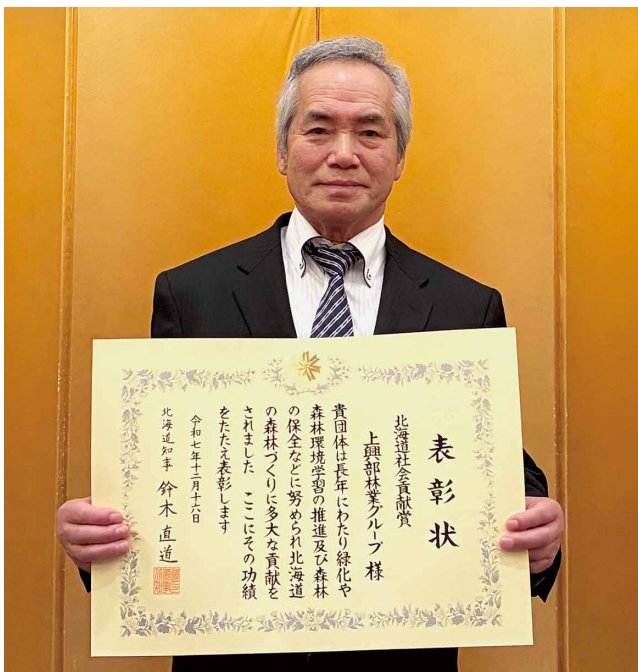 表彰状
北海道社会貢献賞
上興部林業グループ 様
貴団体は長年にわたり緑化や
森林環境学習の推進及び森林
の保全などに努められ北海道
の森林づくりに多大な貢献を
されました ここにその功績
をたたえ表彰します
令和七年十二月十六日
北海道知事 鈴木 直道